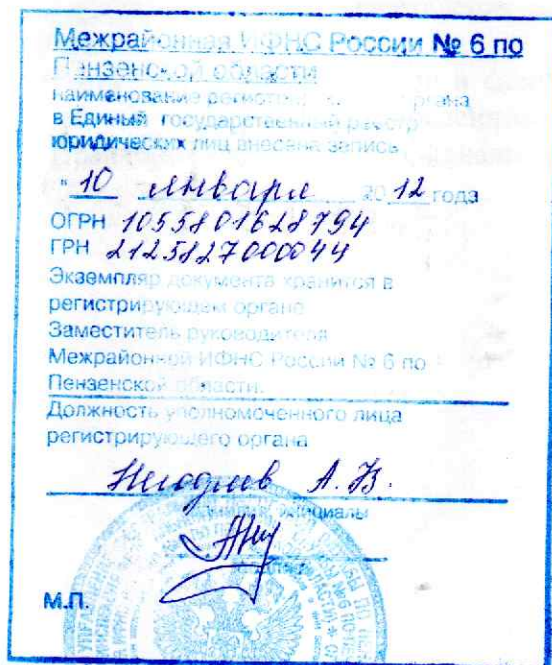 Межрайонная ИФНС России № 6 по
Пензенской области
наименование регистрирующего органа
в Единый государственный реестр
юридических лиц внесена запись
"10 января 2012 года
ОГРН 1055801628794
ГРН 2125827000044
Экземпляр документа хранится в
регистрирующем органе
Заместитель руководителя
Межрайонной ИФНС России № 6 по
Пензенской области.
Должность уполномоченного лица
регистрирующего органа
А.В.
фамилия, инициалы
М.П.